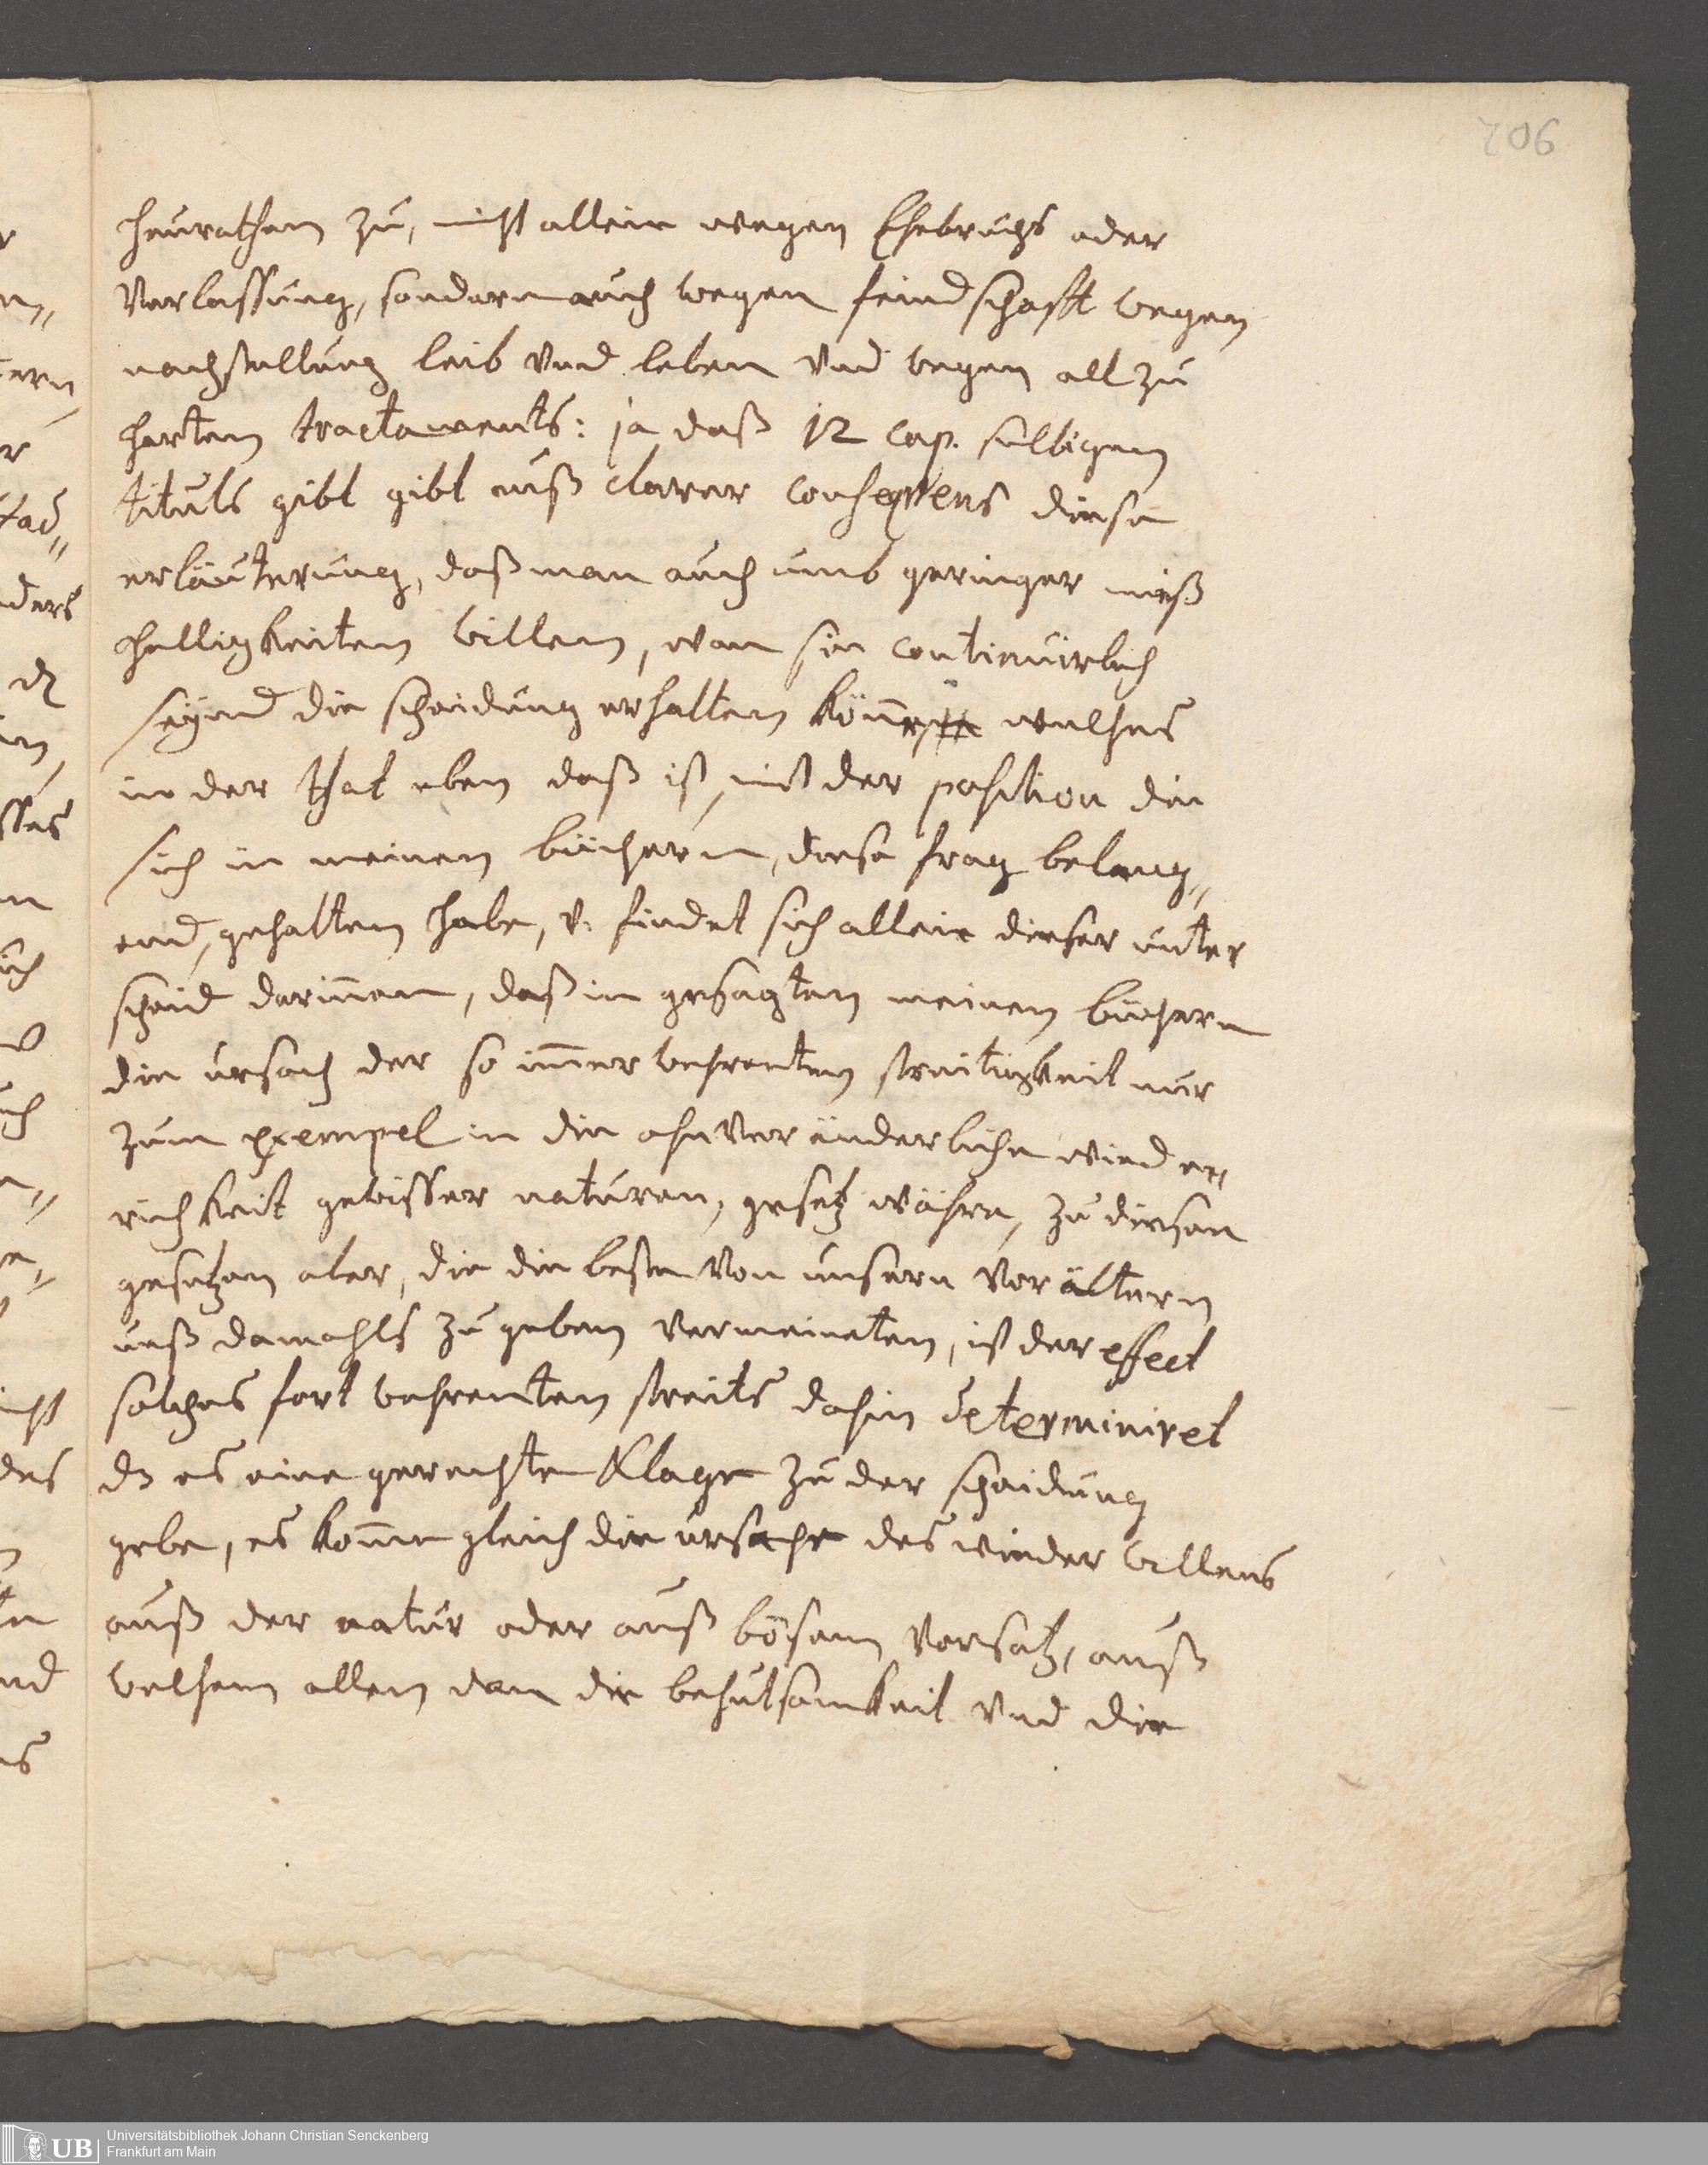 206
heurathen zu, nicht allein wegen Ehebruchs oder
Verlassung, sondern auch wegen feindschafft wegen
nachstellung leib und leben und wegen all zu
hartem tractaments: ja daß 12 Cap. selbigem
tituls gibt gibt auß clarer consequens diese
erläuterung, daß man auch umb geringer miß
helligkeiten willen, wan sie continuirlich
seynd die scheidung erhalten könne welches
in der that eben daß ist, mit der position die
sich in meinen büchern, diese frag belang„
end, gehalten habe, v. findet sich allein dieser unter
scheid darinnen, daß in gesagten meinen büchern
die ursach der so immer wehrenten streitigkeit nur
zum exempel in die ohnveränderliche wied er„
richkeit gewisser naturen, gesetz währe, zu diesen
gesetzen aber, die die besten von unsern Vorältern
unß damahls zu geben vermeineten, ist der effect
solches fort wehrenten streits dahin determiniret
dz es eine gerechte Klage zu der scheidung
gebe, es komme gleich die ursache des wieder willens
auß der natur oder auß bösem Vorsatz, auß
welchem allem dan die behutsamkeit und die
UB
Universitätsbibliothek Johann Christian Senckenberg
Frankfurt am Main